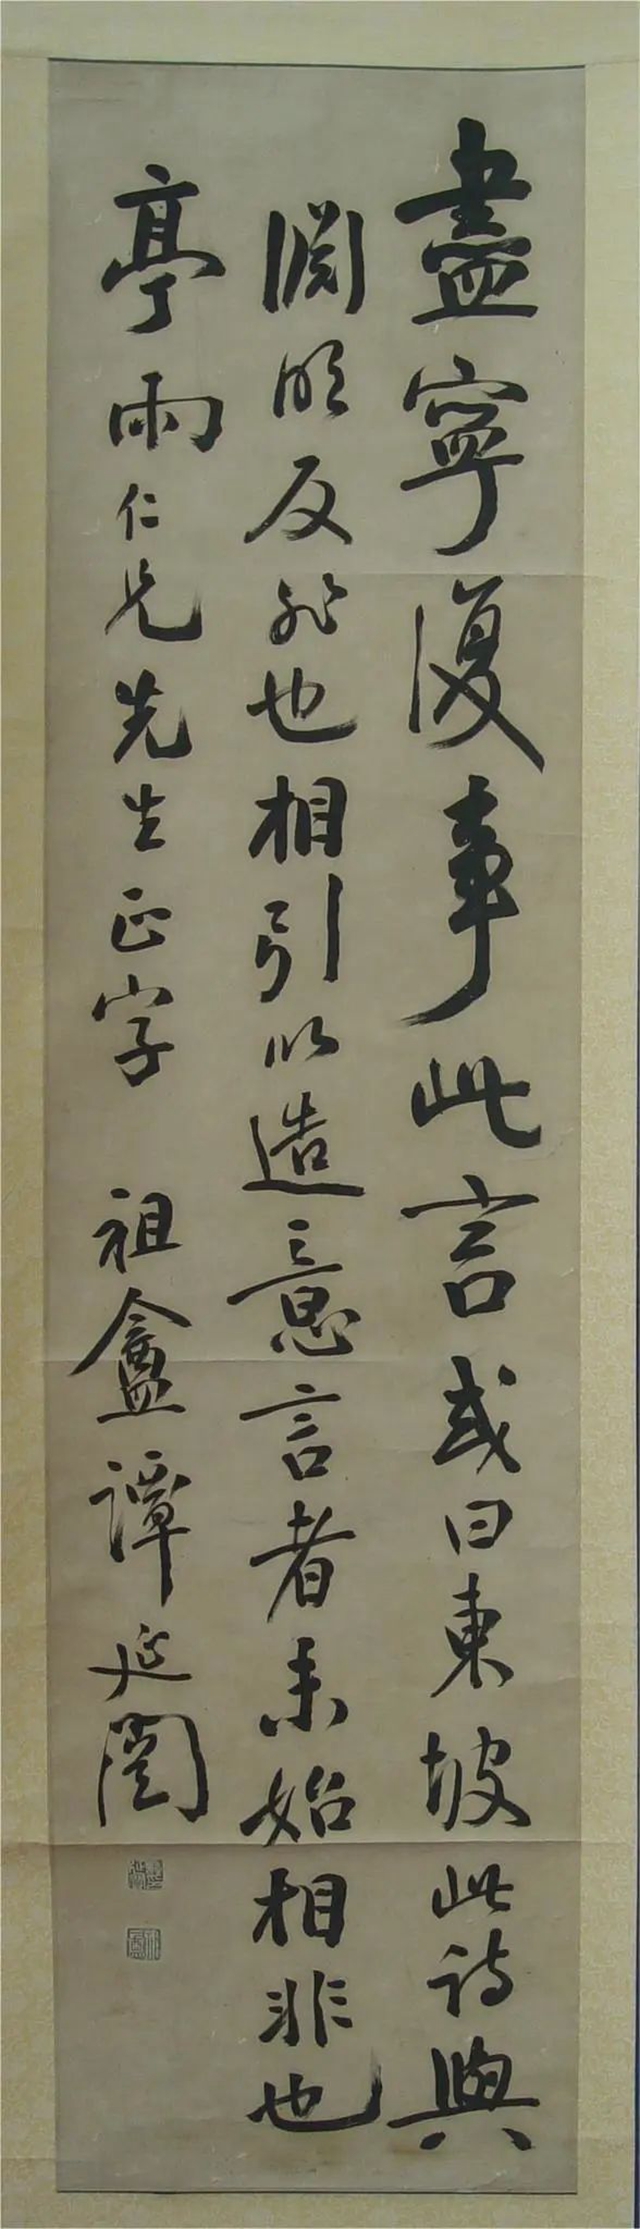 盡寧復事此言或曰東坡此詩與
淵明反非也相引以造意言者未始相非也
亭雨仁兄先生正字 祖盦譚延闓